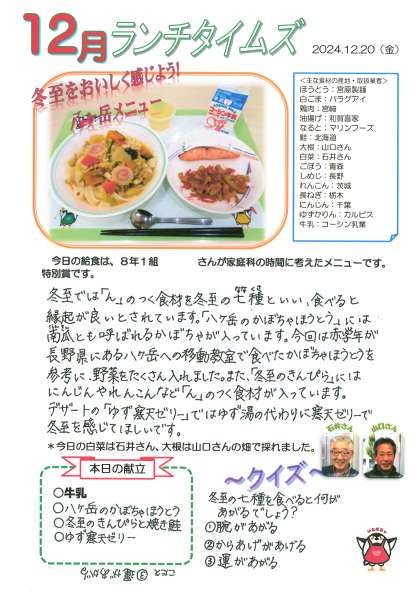 12月ランチタイムズ
2024.12.20（金）
冬至をおいしく感じよう！
八ヶ岳メニュー
＜主な食材の産地・取扱業者＞
ほうとう：宮原製麺
白ごま：パラグアイ
鶏肉：宮崎
油揚げ：和賀富家
なると：マリンフーズ
鮭：北海道
大根：山口さん
白菜：石井さん
ごぼう：青森
しめじ：長野
れんこん：茨城
長ねぎ：栃木
にんじん：千葉
ゆずかりん：カルピス
牛乳：コーシン乳業
今日の給食は、８年１組　　　さんが家庭科の時間に考えたメニューです。
特別賞です。
冬至では「ん」のつく食材を冬至の七種といい、食べると
縁起が良いとされています。「八ヶ岳のかぼちゃほうとう」には
南瓜とも呼ばれるかぼちゃが入っています。今回は赤学年が
長野県にある八ヶ岳への移動教室で食べたかぼちゃほうとうを
参考に、野菜をたくさん入れました。また、「冬至のきんぴら」には
にんじんやれんこんなど「ん」のつく食材が入っています。
デザートの「ゆず寒天ゼリー」ではゆず湯の代わりに寒天ゼリーで
冬至を感じてほしいです。
＊今日の白菜は石井さん、大根は山口さんの畑で採れました。
石井さん
山口さん
本日の献立
○牛乳
○八ヶ岳のかぼちゃほうとう
○冬至のきんぴらと焼き鮭
○ゆず寒天ゼリー
～クイズ～
冬至の七種を食べると何が
あがるでしょう？
①腕があがる
②からあげがあげる
③運があがる
こたえ ③運があがる